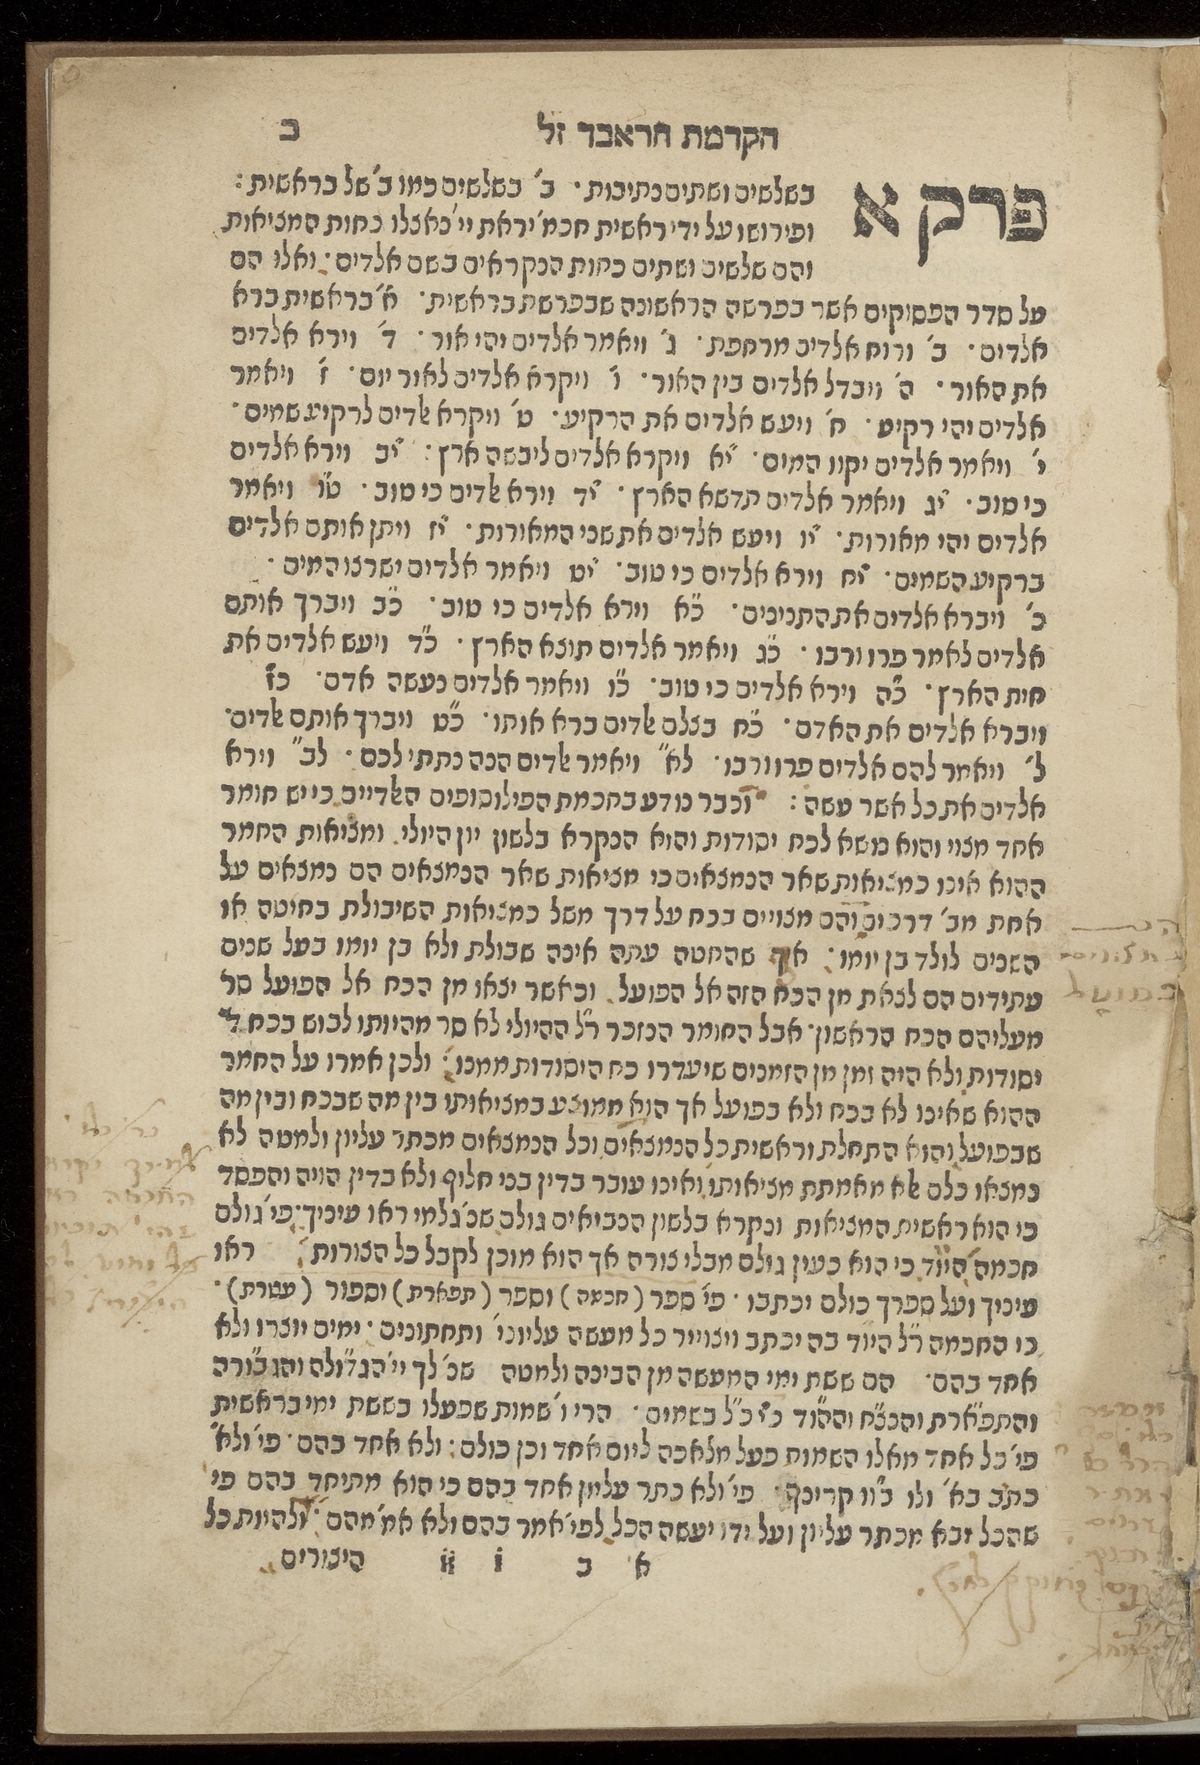 הקדמת הראבד זל
ב
פרק א
בשלשים ושתים נתיבות · ב׳ בשלשים כמו ב׳ של בראשית :
ופירושו על ידי ראשית חכמ׳ יראת יי׳ נאצלו כחות המציאות
והם שלשים ושתים כחות הנקראים בשם אלדים · ואלו הם
על סדר הפסוקים אשר בפרשה הראשונה שבפרשת בראשית · א׳ בראשית ברא
אלדים · ב׳ ורוח אלדים מרחפת · ג׳ ויאמר אלדים יהי אור · ד׳ וירא אלדים
את האור · ה׳ ויבדל אלדים בין האור · ו׳ ויקרא אלדים לאור יום · ז׳ ויאמר
אלדים יהי רקיע · ח׳ ויעש אלדים את הרקיע · ט׳ ויקרא אלדים לרקיע שמים ·
י׳ ויאמר אלדים יקוו המים · י״א ויקרא אלדים ליבשה ארץ : י״ב וירא אלדים
כי טוב · י״ג ויאמר אלדים תדשא הארץ · י״ד וירא אלדים כי טוב · ט״ו ויאמר
אלדים יהי מאורות · י״ו ויעש אלדים את שני המאורות · י״ז ויתן אותם אלדים
ברקיע השמים · י״ח וירא אלדים כי טוב · י״ט ויאמר אלדים ישרצו המים ·
כ׳ ויברא אלדים את התנינים · כ״א וירא אלדים כי טוב · כ״ב ויברך אותם
אלדים לאמר פרו ורבו · כ״ג ויאמר אלדים תוצא הארץ · כ״ד ויעש אלדים את
חית הארץ · כ״ה וירא אלדים כי טוב · כ״ו ויאמר אלדים נעשה אדם · כ״ז
ויברא אלדים את האדם · כ״ח בצלם אלדים ברא אותו · כ״ט ויברך אותם אלדים ·
ל׳ ויאמר להם אלדים פרו ורבו · לא״ ויאמר אלדים הנה נתתי לכם · לב״ וירא
אלדים את כל אשר עשה : וכבר נודע בחכמת הפילוסופים האלדיים כי יש חומר
אחד מצוי והוא נושא לכח יסודות והוא הנקרא בלשון יון היולי · ומציאות החמר
ההוא אינו כמציאות שאר הנמצאים כי מציאות שאר הנמצאים הם נמצאים על
אחת מב׳ דרכים והם מצויים בכח על דרך משל כמציאות השיבולת בחיטה או
השנים לולד בן יומו · אך שהחטה עתה אינה שבולת ולא בן יומו בעל שנים
עתידים הם לצאת מן הכח הזה אל הפועל · וכאשר יצאו מן הכח אל הפועל סר
מעליהם הכח הראשון · אבל החומר הנזכר ר״ל ההיולי לא סר מהיותו לבוש בכח ד׳
יסודות ולא היה זמן מן הזמנים שיעדרו כח היסודות ממנו · ולכן אמרו על החמר
ההוא שאינו לא בכח ולא בפועל אך הוא ממוצע במציאותו בין מה שבכח ובין מה
שבפועל והוא התחלת וראשית כל הנמצאים וכל הנמצאים מכתר עליון ולמטה לא
נמצאו כלם אלא מאמתת מציאותו ואינו עובר בדין בני חלוף ולא בדין הויה והפסד
כי הוא ראשית המציאות ונקרא בלשון הנביאים גולם שנ׳ גלמי ראו עיניך · פי׳ גולם
חכמה היו״ד כי הוא כעין גולם מבלי צורה אך הוא מוכן לקבל כל הצורות · ראו
עיניך ועל ספרך כולם יכתבו · פי׳ ספר (חכמה) וספר (תפארת) וספור (עטרת) ·
כי החכמה ר״ל היוד בה יכתב ויצוייר כל מעשה עליוני׳ ותחתונים · ימים יוצרו ולא
אחד בהם · הם ששת ימי המעשה מן הבינה ולמטה שנ׳ לך יי׳ הגדולה והגבורה
והתפארת והנצח וההוד כי כ״ל בשמים · הרי ו׳ שמות שפעלו בששת ימי בראשית
פי׳ כל אחד מאלו השמות פעל מלאכה ליום אחד וכן כולם : ולא אחד בהם · פי׳ ולא
כתב בא׳ ולו ב״וו קרינן · פי׳ ולא כתר עליון אחד בהם כי הוא מתיחד בהם פי׳
שהכל נבא מכתר עליון ועל ידו יעשה הכל לפי׳ אמר בהם ולא אמ׳ מהם · ולהיות כל
א ב ii היצורים